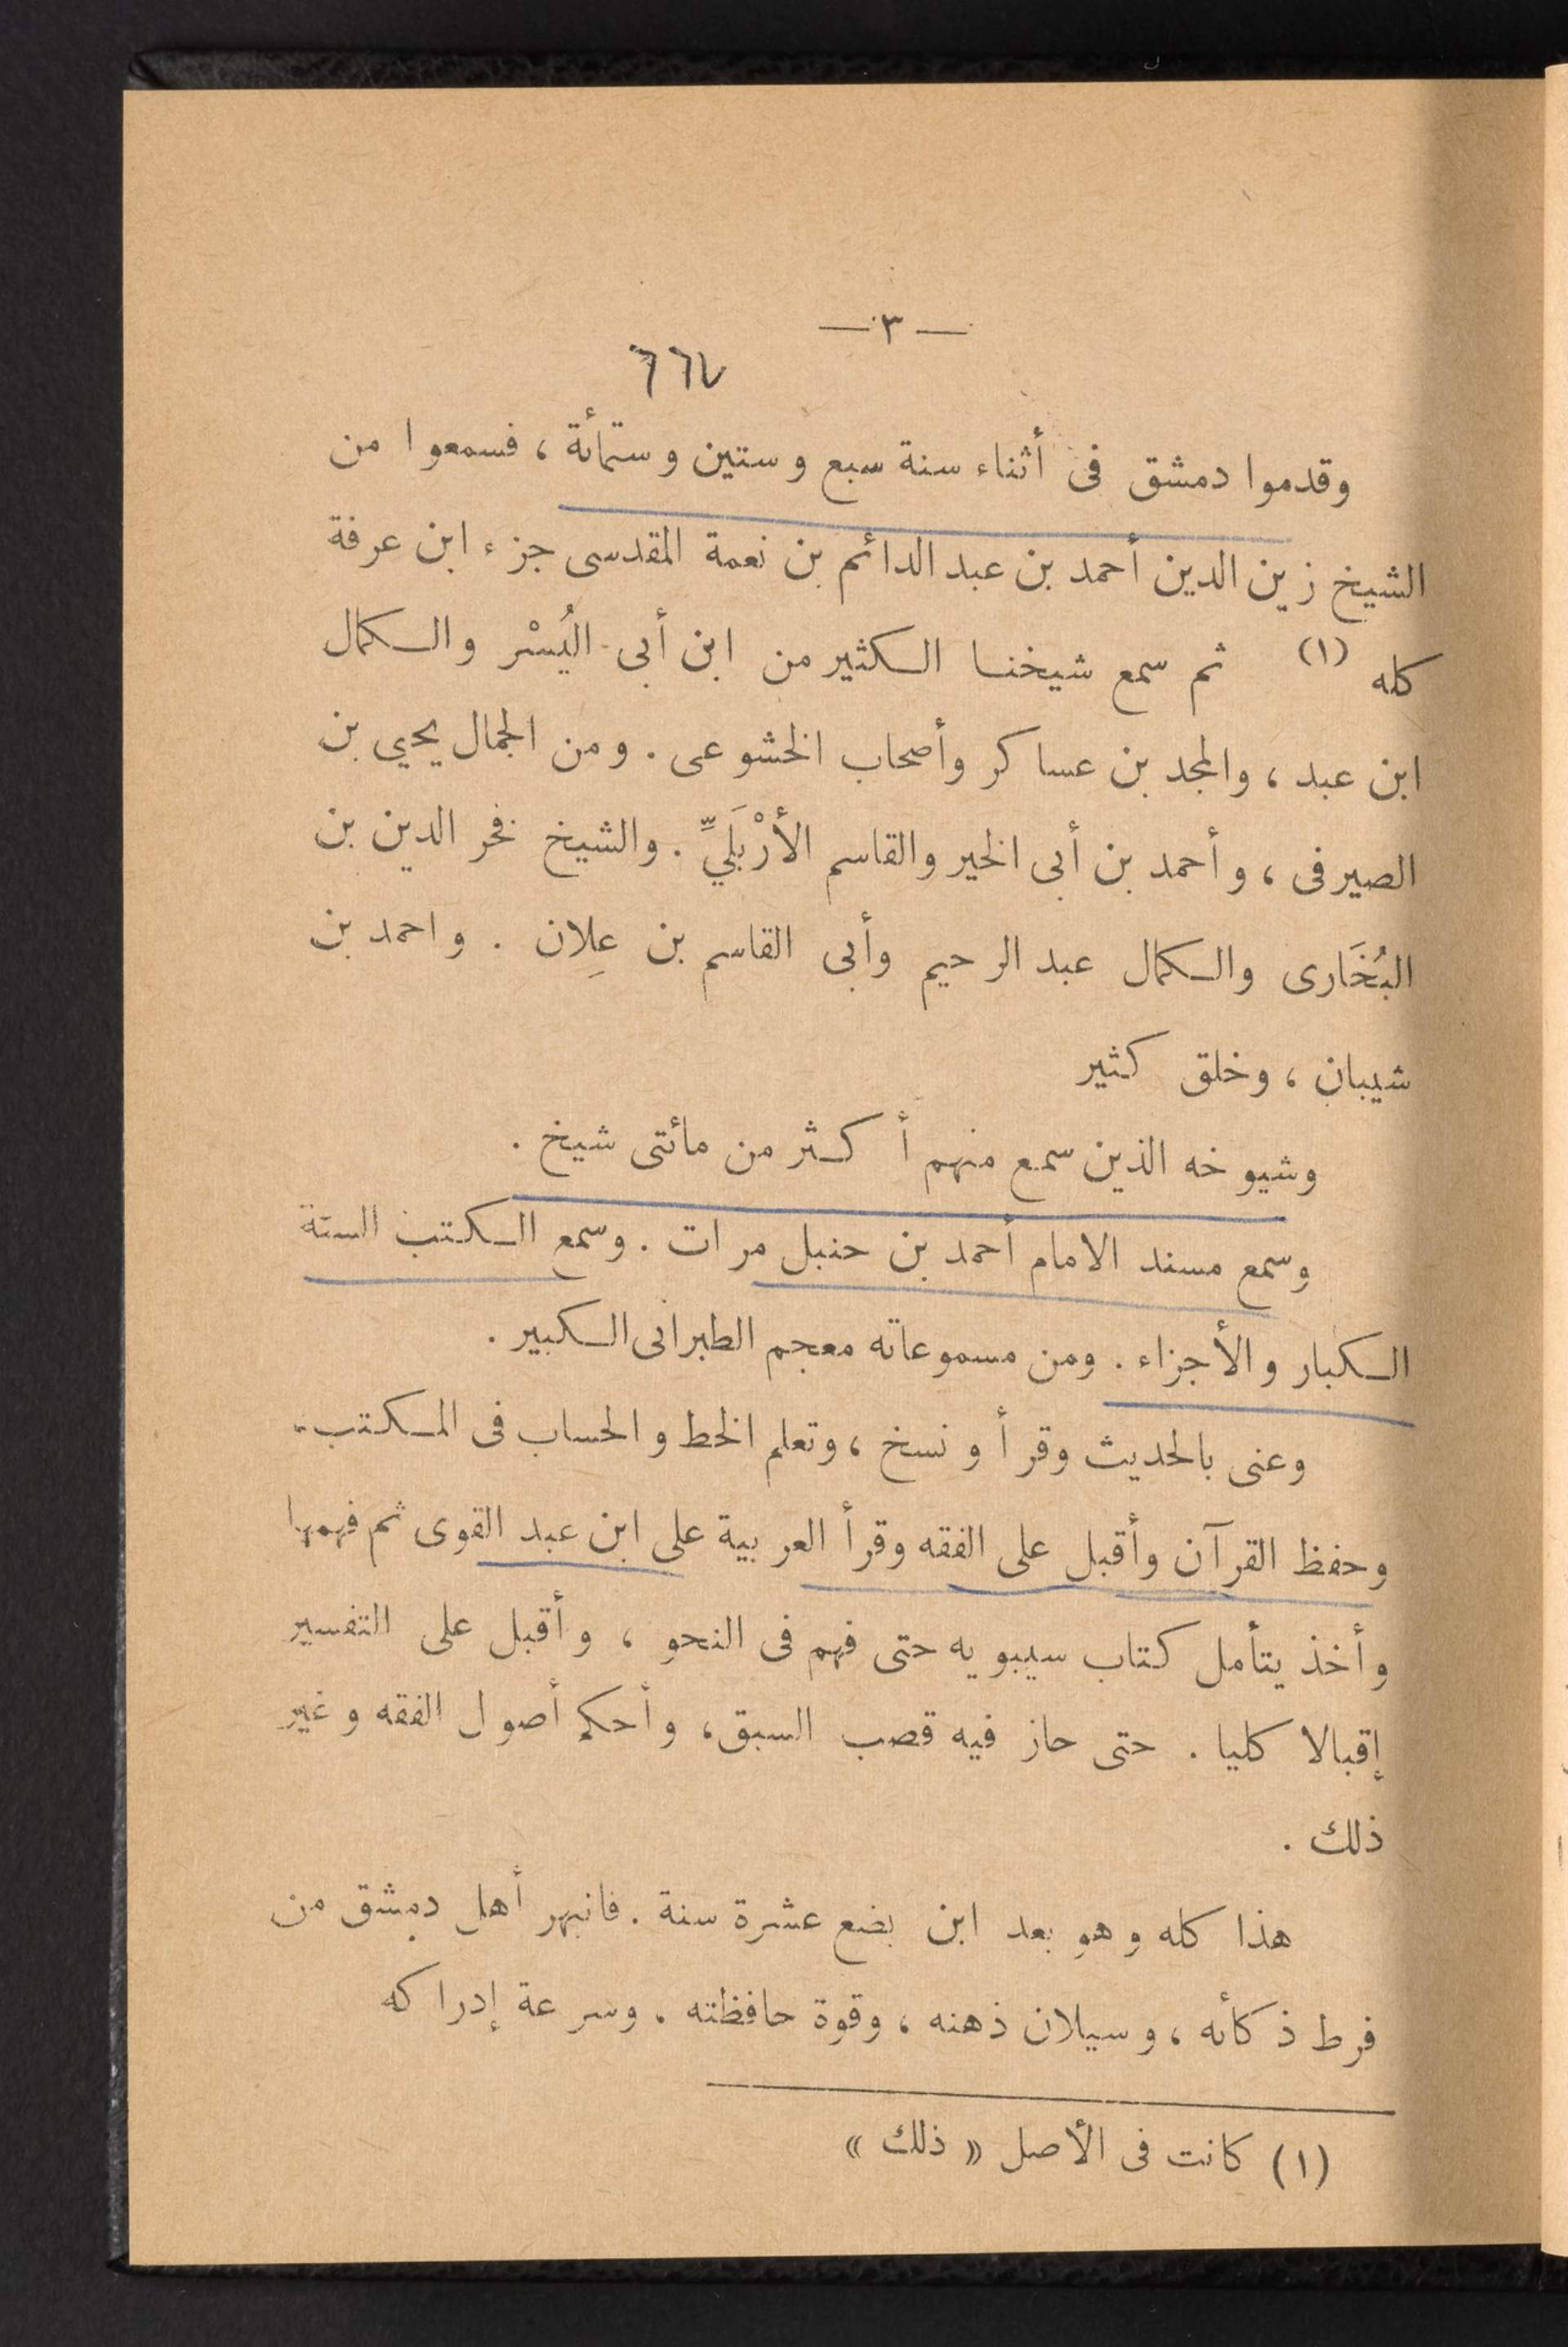 — ٣ —
٦٦٧
وقدموا دمشق فى أثناء سنة سبع وستين وستمأئة ، فسمعوا من
الشيخ زين الدين أحمد بن عبد الدائم بن نعمة المقدسى جزء ابن عرفة
كله (١) ثم سمع شيخنا الكثير من ابن أبى اليُسْر والكمال
ابن عبد ، والمجد بن عساكر وأصحاب الخشوعى . ومن الجمال يحيى بن
الصيرفى ، وأحمد بن أبى الخير والقاسم الأرْبَليِّ . والشيخ فخر الدين بن
البُخَارى والكمال عبد الرحيم وأبى القاسم بن عِلان . واحمد بن
شيبان ، وخلق كثير
وشيوخه الذين سمع منهم أكثر من مائتى شيخ .
وسمع مسند الامام أحمد بن حنبل مرات . وسمع الكتب الستة
الكبار والأجزاء . ومن مسموعاته معجم الطبرانى الكبير .
وعنى بالحديث وقرأ ونسخ ، وتعلم الخط والحساب فى المكتب .
وحفظ القرآن وأقبل على الفقه وقرأ العربية على ابن عبد القوى ثم فهمها
وأخذ يتأمل كتاب سيبويه حتى فهم فى النحو ، وأقبل على التفسير
إقبالا كليا . حتى حاز فيه قصب السبق ، وأحكم أصول الفقه وغير
ذلك .
هذا كله وهو بعد ابن بضع عشرة سنة . فانبهر أهل دمشق من
فرط ذكأئه ، وسيلان ذهنه ، وقوة حافظته . وسرعة إدراكه
(١) كانت فى الأصل « ذلك »